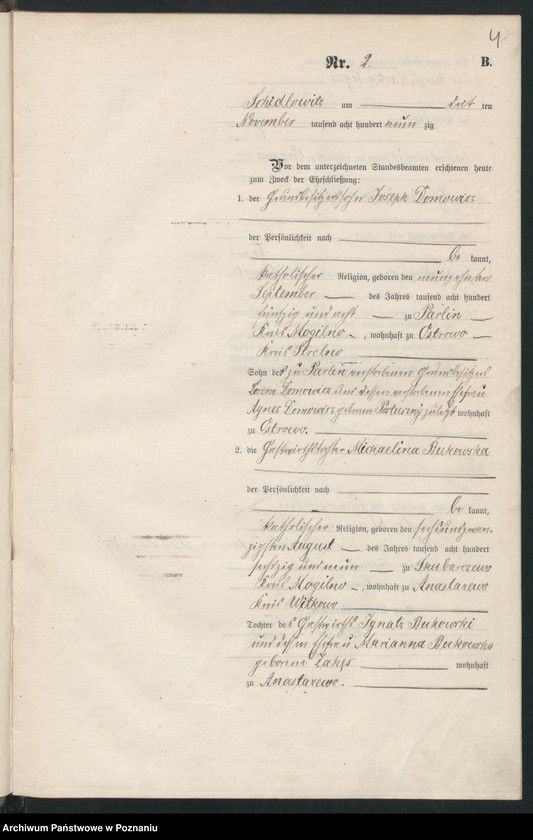 4.
Nr. 2. B.
Schidlowitz am drit ten
November tausend acht hundert neun zig
Vor dem unterzeichneten Standesbeamten erschienen heute
zum Zweck der Eheschließung:
1. der Grundbesitzersohn Joseph Domowicz
der Persönlichkeit nach
be kannt,
katholischer Religion, geboren den neunzehnten
September des Jahres tausend acht hundert
fünfzig und acht zu Parlin
Kreis Mogilno, wohnhaft zu Ostrowo
Kreis Strelno
Sohn des zu Parlin verstorbenen Grundbesitzers
Lorenz Domowicz und dessen verstorbenen Ehefrau
Agnes Domowicz geborenen zuletzt wohnhaft
zu Ostrowo.
2. die Gastwirthstochter Michaelina Bukowska
der Persönlichkeit nach
be kannt,
katholischer Religion, geboren den sechsundzwan-
zigsten August des Jahres tausend acht hundert
sechzig und neun zu Skubarzewo
Kreis Mogilno, wohnhaft zu Anastazewo
Kreis Witkowo
Tochter des Gastwirths Ignatz Bukowski
und dessen Ehefrau Marianna Bukowska
geborene wohnhaft
zu Anastazewo.
Archiwum Państwowe w Poznaniu